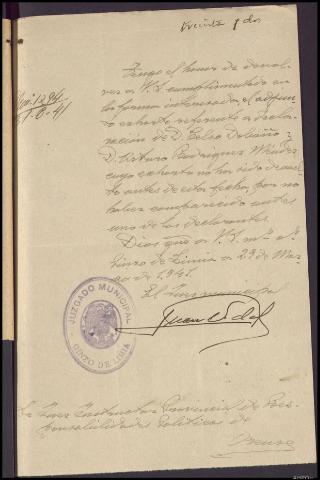 treinta y dos
Tengo el honor de devol-
ver a V.S. cumplimentado en
la forma interesada el adjun-
to exhorto referente a decla-
ración de D. Celso
D. Arturo Rodriguez Méndez
cuyo exhorto no ha sido devuel-
to antes de esta fecha, por no
haber comparecido antes
uno de los declarantes.
Dios que a V.S. m.s a.s
Ginzo de Limia a 29 de Mar-
zo de 1941.
El Juez municipal
JUZGADO MUNICIPAL
GINZO DE LIMIA
Juez Instructor Provincial de Res-
ponsabilidades Politicas de
Orense